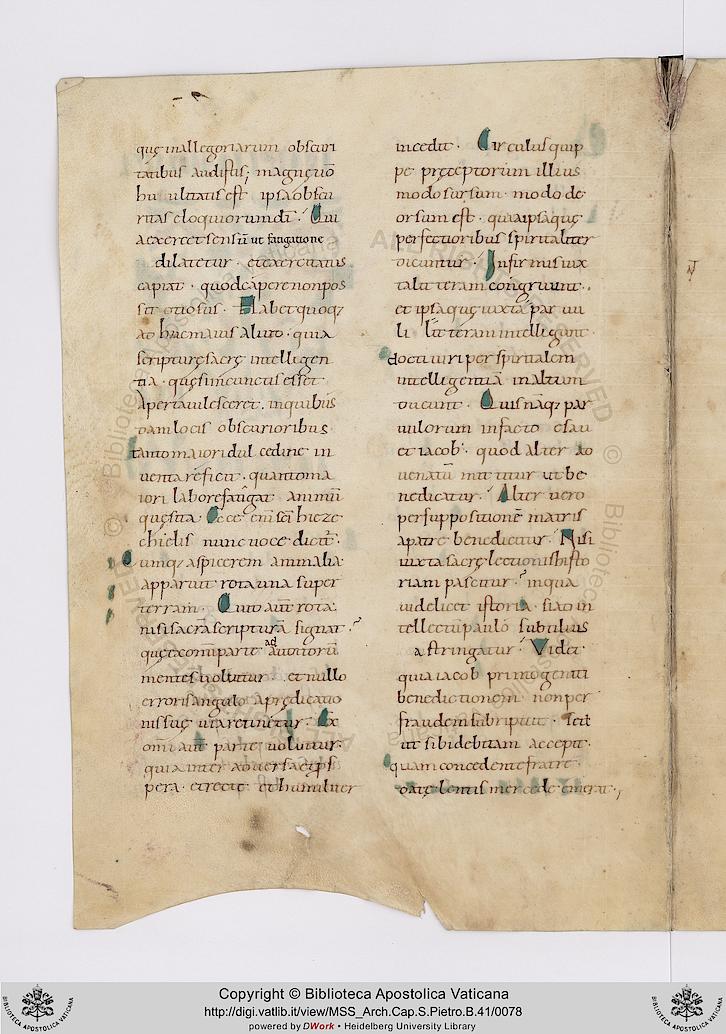 quȩ in allegoriarum obscuri
tatibus audistis; magnȩ uti
litatis est ipsa obscu
ritas eloquiorum dī. Qui
a exercet sensū ut fatigatione
dilatetur. et exercitatus
capiat. quod capere non pos
set otiosus. Habet quoq;
adhuc maius aliud. quia
scripturȩ sacrȩ intelligen
tia. quȩ si in cunctis esset
aperta uilesceret. in quibus
dam locis obscurioribus
tanto maiori dulcedine in
uenta reficit. quanto ma
iori labore fatigat animū
quȩsita. Ecce enī sēi hieze
chielis nunc uoce dicit.
Cumq; aspicerem animalia
apparuit rota una super
terram. Quid aūt rota.
nisi sacrā scripturā signat.
quȩ ex omī parte ad auditorū
mentes uoluitur. et nullo
erroris angulo a prȩdicatio
nis suȩ uia retinetur. Ex
omī aūt parte uoluitur.
quia inter aduersa et pros
pera. et recte et humiliter
incedit. Circulus quip
pe prȩceptorum illius
modo sursum. modo de
orsum est. quia ipsa quȩ
perfectioribus spiritaliter
dicuntur. Infirmis iux
ta litteram congruunt.
et ipsa quȩ iuxta par uu
li litteram intelligunt.
docti uiri per spiritalem
intelligentiā in altum
ducunt. Quis nāq; par
uulorum in facto esau
et iacob. quod alter ad
uenatū mittitur ut be
nedicatur. Alter uero
per suppositionē matris
a patre benedicitur. Nisi
iuxta sacrȩ lectionis histo
riam pascitur. In qua
uidelicet istoria. si ad in
tellectū paulo subtilius
astringatur. Videt
quia iacob primogeniti
benedictionem non per
fraudem subripuit. Sed
ut sibi debitam accepit.
quam concedente fratre
data lentis mercede emerat.
Copyright © Biblioteca Apostolica Vaticana
http://digi.vatlib.it/view/MSS_Arch.Cap.S.Pietro.B.41/0078
powered by DWork • Heidelberg University Library